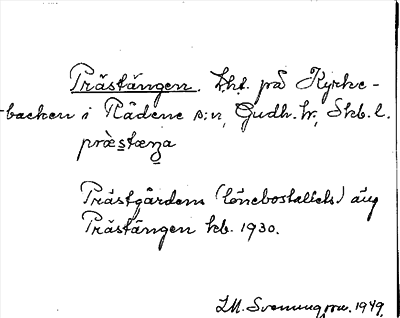 Prästängen. Lht. på Kyrke-
backen i Rådene s:n, Gudh. hr, Skb. l.
præstæŋa
Prästgårdens (lönebostallets) äng
Prästängen kb. 1930.
I.M. Svenungsson. 1949.